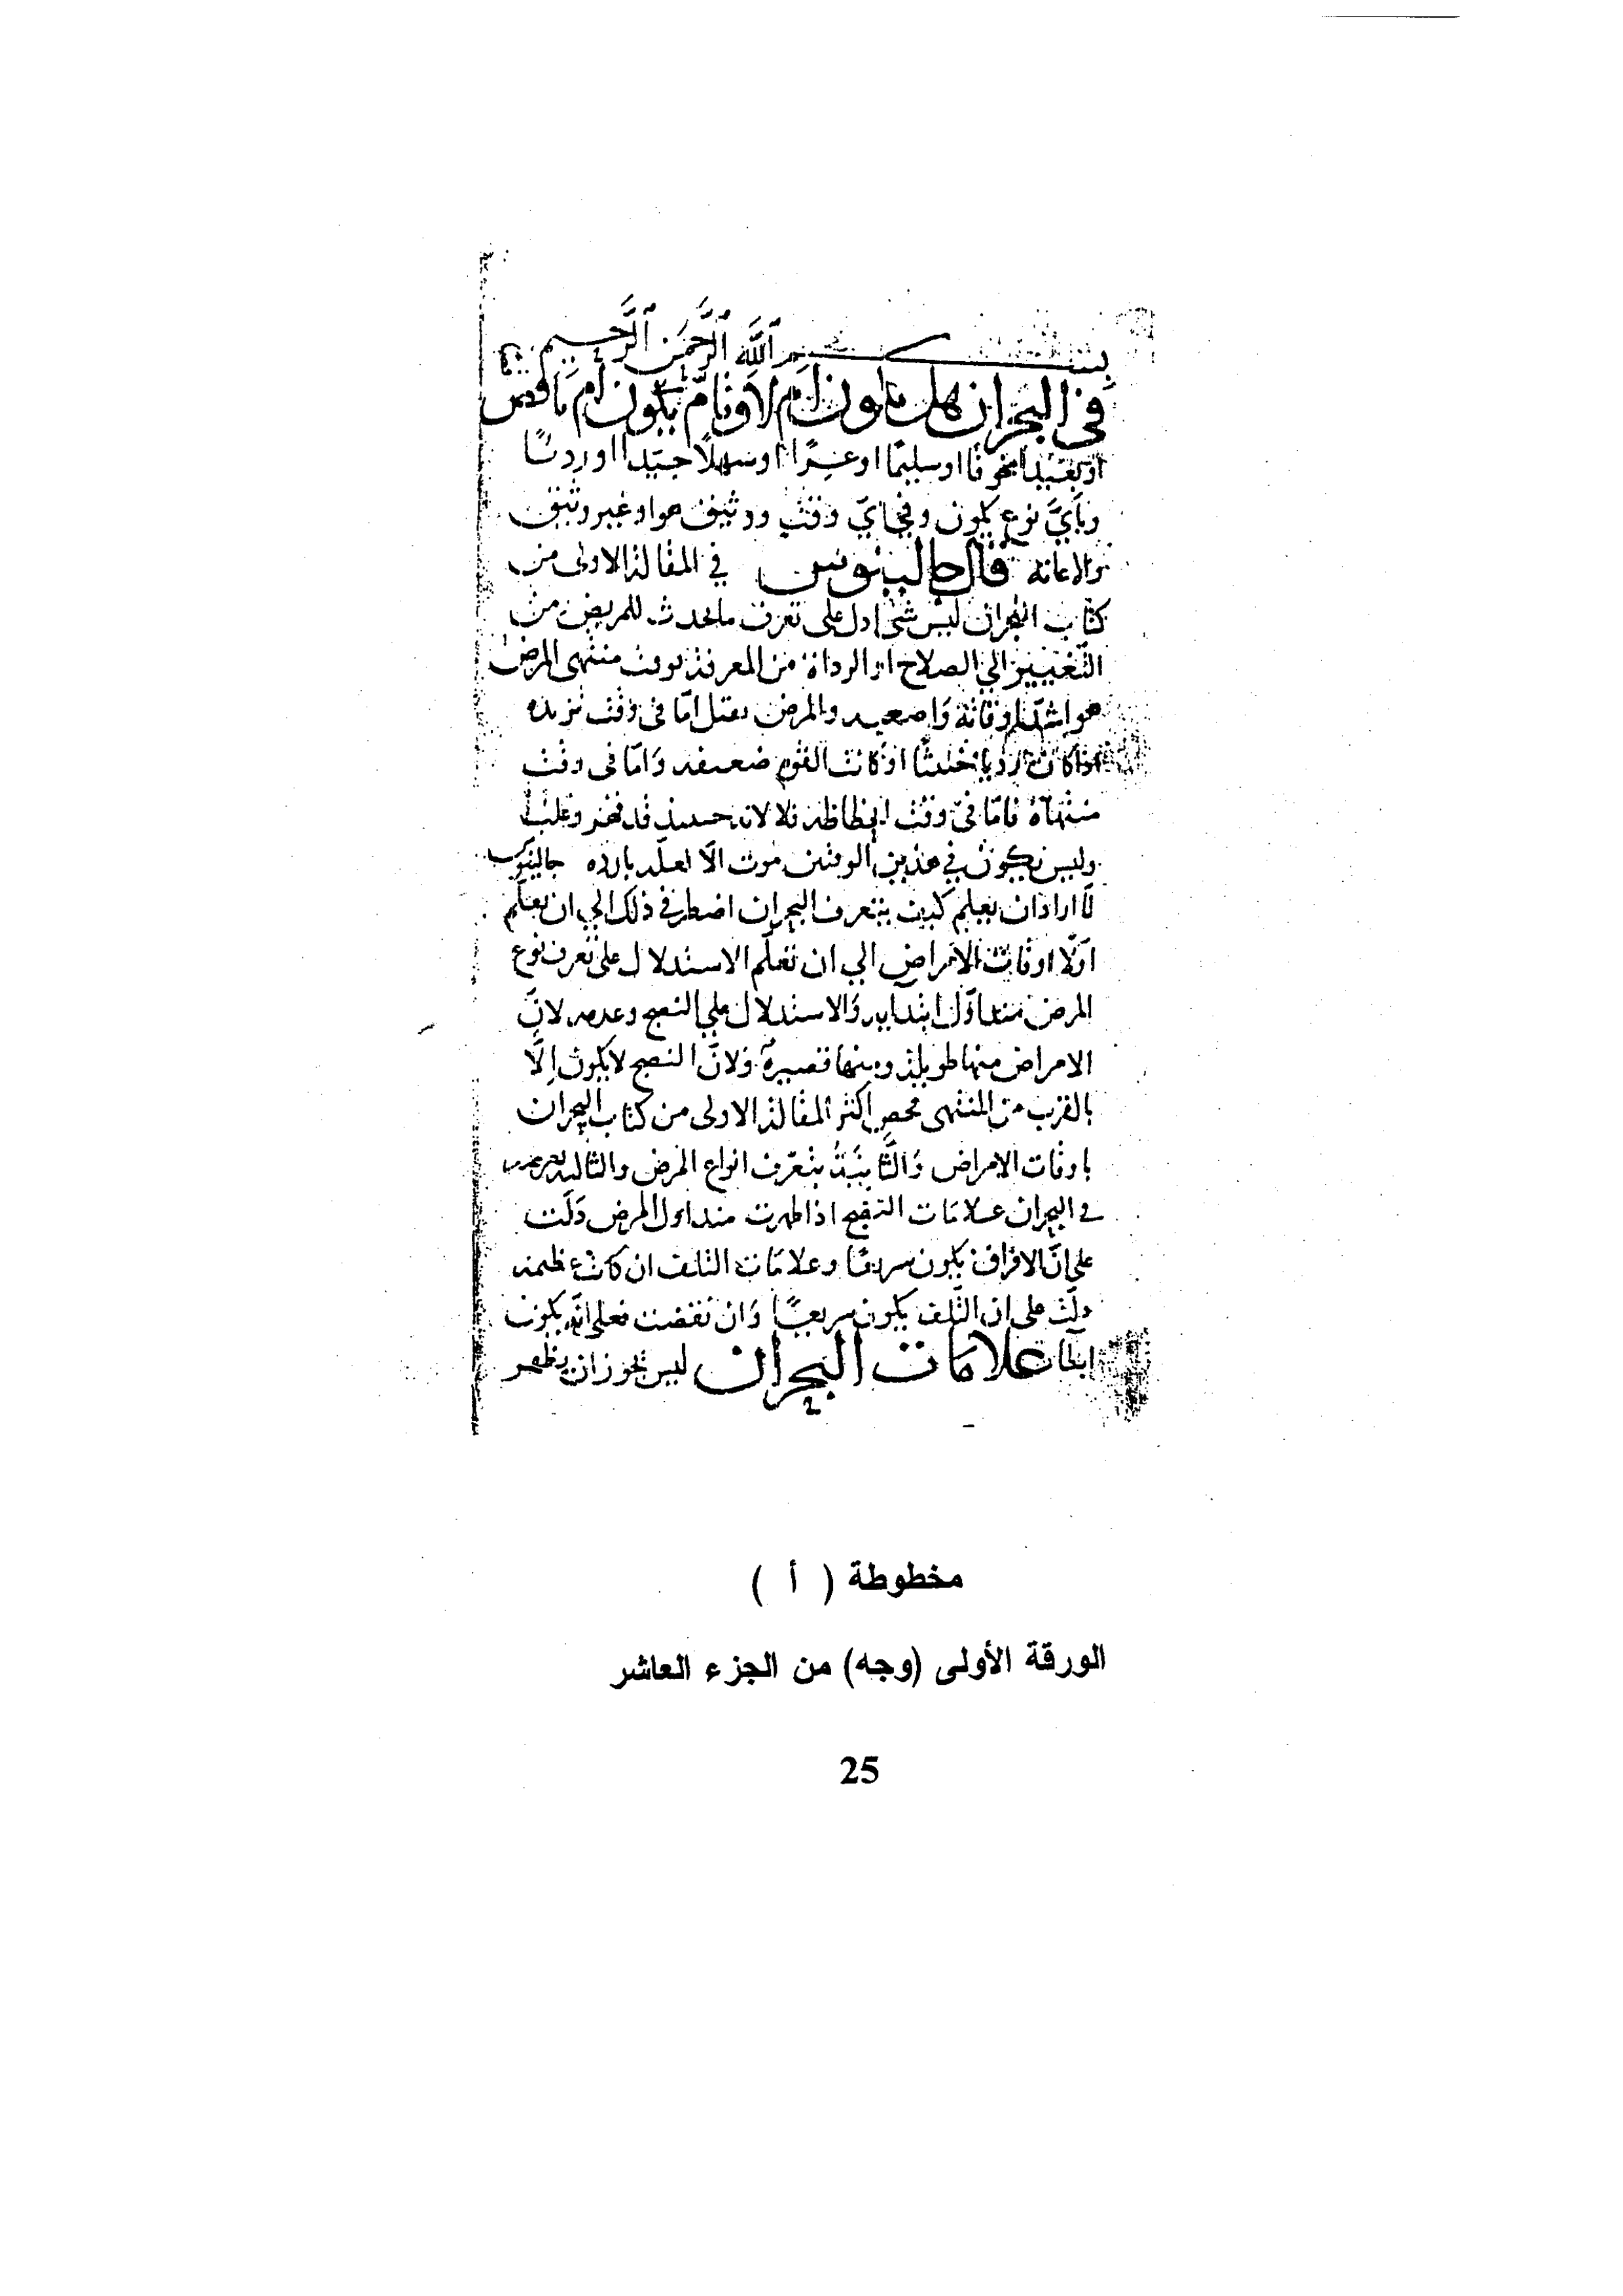 بسم الله الرحمن الرحيم
في البحران هل يكون ام لا وتام يكون ام ناقص
او بعيدا مخوفا او سليما او عسرا او سهلا جيدا او رديا
وبأيّ نوع يكون وفي ايّ وقت ووثيق هو او غير وثيق
والاعانة قال جالينوس في المقالة الاولى من
كتاب البحران ليس شى ادل على تعرف ما يحدث للمريض من
التغيير الي الصلاح او الرداة من المعرفة بوقت منتهى المرض
هو اشد اوقاته واصعبه والمرض يقتل امّا فى وقت تزيده
اذا كان رديا خبيثا او كانت القوة ضعيفة وامّا فى وقت
منتهاه فامّا فى وقت انحطاطه فلا لانه حينيذ قد قهر وغلب
وليس يكون في هذين الوقتين موت الّا لعلة بارده جالينوس
لما اراد ان يعلم كيف يتعرف البحران اضطر في ذلك الي ان يعلّم
اوّلا اوقات الامراض الي ان تعلّم الاستدلال على تعرف نوع
المرض منذ اوّل ابتدايه والاستدلال علي النضج وعدمه لانّ
الامراض منها طويلة ومنها قصيرة ولانّ النضج لا يكون إلّا
بالقرب من المنتهى فحص اكثر المقالة الاولى من كتاب البحران
باوقات الامراض والثّانية بتعرّف انواع المرض والثالثة
في البحران علامات النضج اذا ظهرت منذ اول المرض دلّت
على انّ الافراق يكون سريعا وعلامات التلف ان كانت عظيمة
دلّت على ان التّلف يكون سريعًا وان نقصت فعلى انّه يكون
ابطا علامات البحران ليس يجوز ان يظهر
مخطوطة ( أ )
الورقة الأولى (وجه) من الجزء العاشر
25